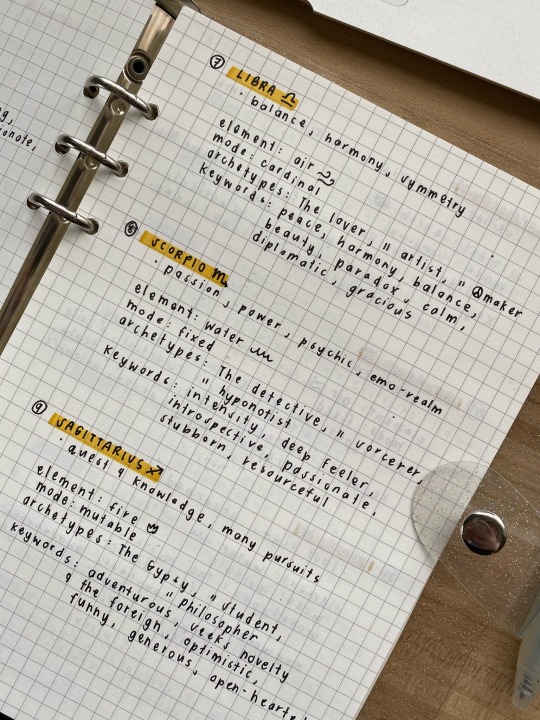 ionate,
⑦ LIBRA ♎
· balance, harmony, symmetry
element: air
mode: cardinal
archetypes: The lover, " artist, " ☮maker
Keywords: peace, harmony, balance,
beauty, paradox, calm,
diplomatic, gracious
⑧ SCORPIO ♏
· passion, power, psychic, emo-realm
element: water
mode: fixed
archetypes: The detective, " sorcerer,
" hypnotist
Keywords: intensity, deep feeler,
introspective, passionate,
stubborn, resourceful
⑨ SAGITTARIUS ♐
· quest 4 knowledge, many pursuits
element: fire
mode: mutable
archetypes: The Gypsy, " student,
" philosopher
Keywords: adventurous, seeks novelty
& the foreign, optimistic,
funny, generous, open-hearted